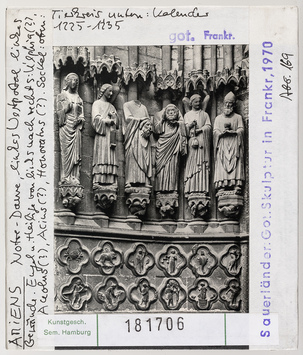 Tierkreis unten: Kalender
1225-1235
got. Frankr.
AMIENS Notre-Dame, linkes Westportal linkes
Gewände, Engel u. Heilige von links nach rechts: Ulphia(?),
Aceolus(?), Acius(?), Honoratus(?); Sockel: oben
Sauerländer: Got. Skulptur in Frankr, 1970
Abb. 169
Kunstgesch.
Sem. Hamburg
181706